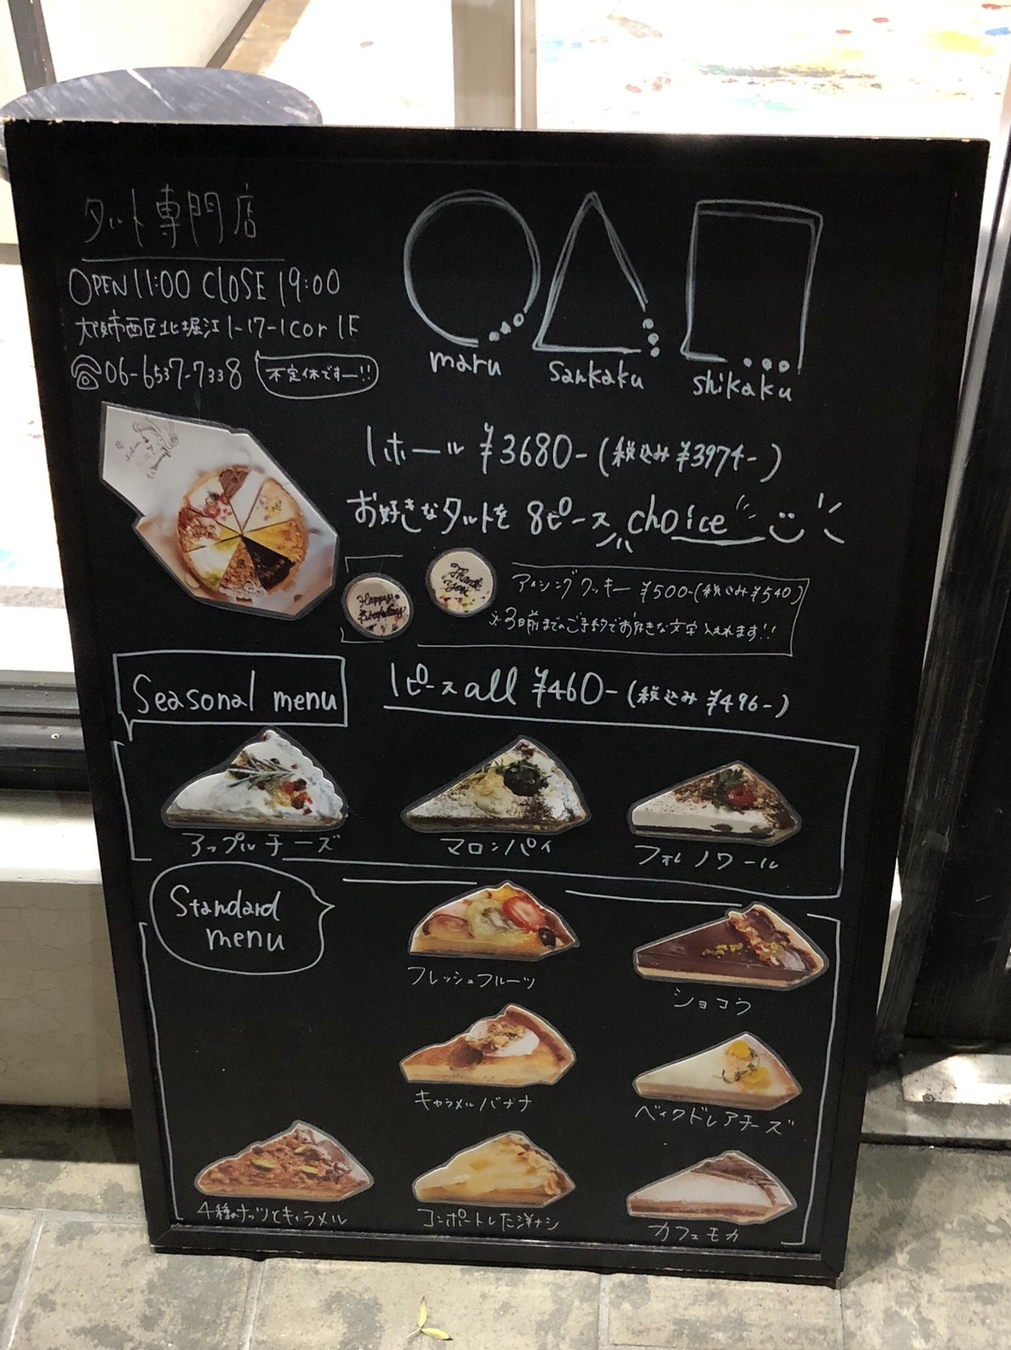 タルト専門店
OPEN 11:00 CLOSE 19:00
大阪市西区北堀江1-17-1 cor 1F
☎06-6537-7338 不定休ですー!!
maru
sankaku
shikaku
1ホール ¥3680-(税込み¥3974-)
お好きなタルトを 8ピース choice
Happy Birthday
Thank You
アイシングクッキー ¥500-(税込み¥540)
※3日前までのご予約でお好きな文字入れれます!!
Seasonal menu
1ピース all ¥460-(税込み¥496-)
アップルチーズ
マロンパイ
フォレノワール
Standard menu
フレッシュフルーツ
ショコラ
キャラメルバナナ
ベイクドレアチーズ
4種のナッツとキャラメル
コンポートした洋ナシ
カフェモカ